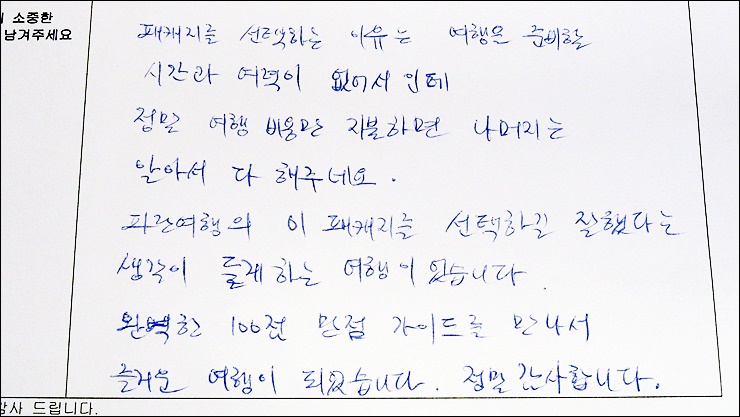 소중한
남겨주세요
패캐지를 선택하는 이유는 여행을 준비할
시간과 여력이 없어서 인데
정말 여행 비용만 지불하면 나머지는
알아서 다 해주네요.
파란여행의 이 패캐지를 선택하길 잘했다는
생각이 들게하는 여행이 였습니다.
완벽한 100점 만점 가이드를 만나서
즐거운 여행이 되었습니다. 정말 감사합니다.
감사 드립니다.